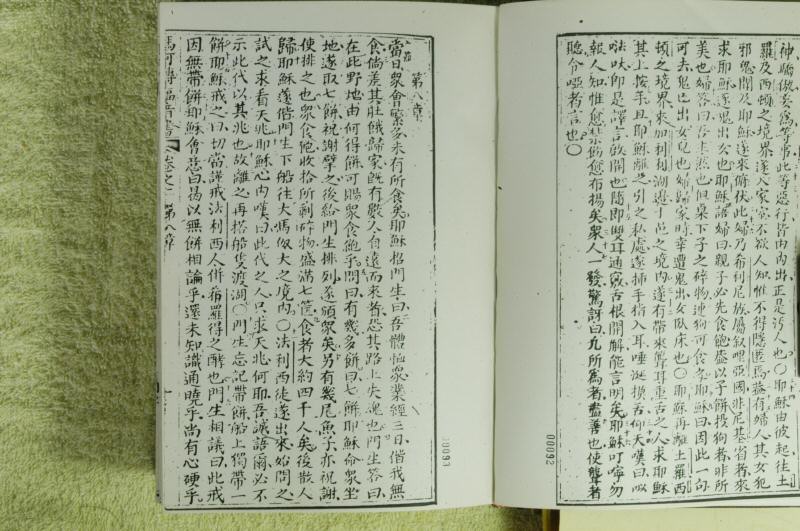 神驕傲妄為等常此等惡行皆由內出正是污人也〇耶穌由彼起往土
羅及西頓之境界遂入家室不欲人知惟不得隱匿焉茲有婦人其女犯
邪鬼聞及耶穌遂來俯伏此婦乃希利尼族屬叙哩亞國非尼基省者來
求耶穌逐鬼出女也耶穌語婦曰親子必先食飽盡以子餅投狗者非所
美也婦答曰吾主然也但桌下子之碎物連狗可食耶穌曰因此一句
可去鬼已出女兒也婦歸家時幸遭鬼出女臥床也〇耶穌再離土羅西
頓之境界來加利利湖邊十邑之境內遂有帶來聾耳重舌之人求耶穌
其上按手且耶穌離之引之私處遂插手指入耳唾涎摸舌仰天嘆曰以
㕸吠即是譯言啟開也隨即雙耳通竅舌根開解能言明矣耶穌叮嚀勿
報人知惟愈禁伊愈布揚矣眾人一發驚訝曰凡所為者盡善也使聾者
聽令啞者言也〇
00092
第八章
當日眾會繁多未有所食矣耶穌招門生曰吾體恤眾業經三日偕我無
食倘差其肚餓歸家既有數人自遠而來者恐其路上失魂也門生答曰
在此野地由何得餅可賜眾食飽乎問曰有幾多餅曰七餅耶穌命眾坐
地遂取七餅祝謝擘之後給門生排列遂頒眾矣另有幾尾魚子亦祝謝
使排之也眾食飽收拾所剩碎物盛滿七筐食者大約四千人矣後散人
歸耶穌遂偕門生下船往大馬似大之境內〇法利西徒遂出來始問之
試之求看天兆耶穌心內嘆曰此代之人只求天兆何耶吾誠語爾必不
示此代以其兆也故離之再搭船隻渡湖〇門生忘記帶餅船上獨帶一
餅耶穌戒之曰切當謹戒法利西人併希羅得之酵也門生相議曰此戒
因無帶餅耶穌會意曰曷以無餅相論乎還未知識通曉乎尚有心硬乎
馬可傳福音書
卷之二
第八章
00093